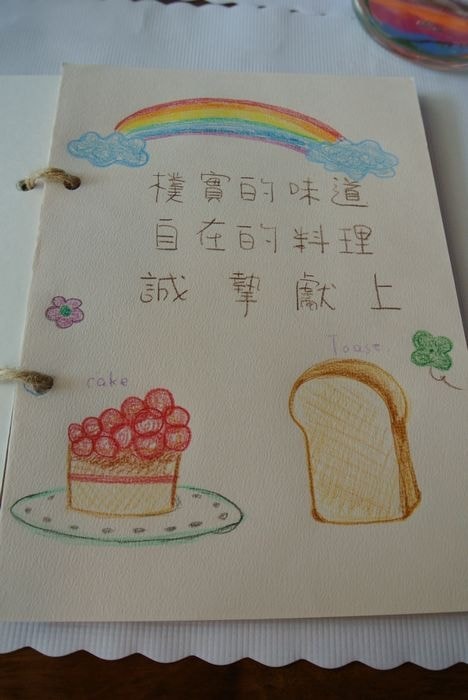 樸實的味道
自在的料理
誠摯獻上
Toast
cake